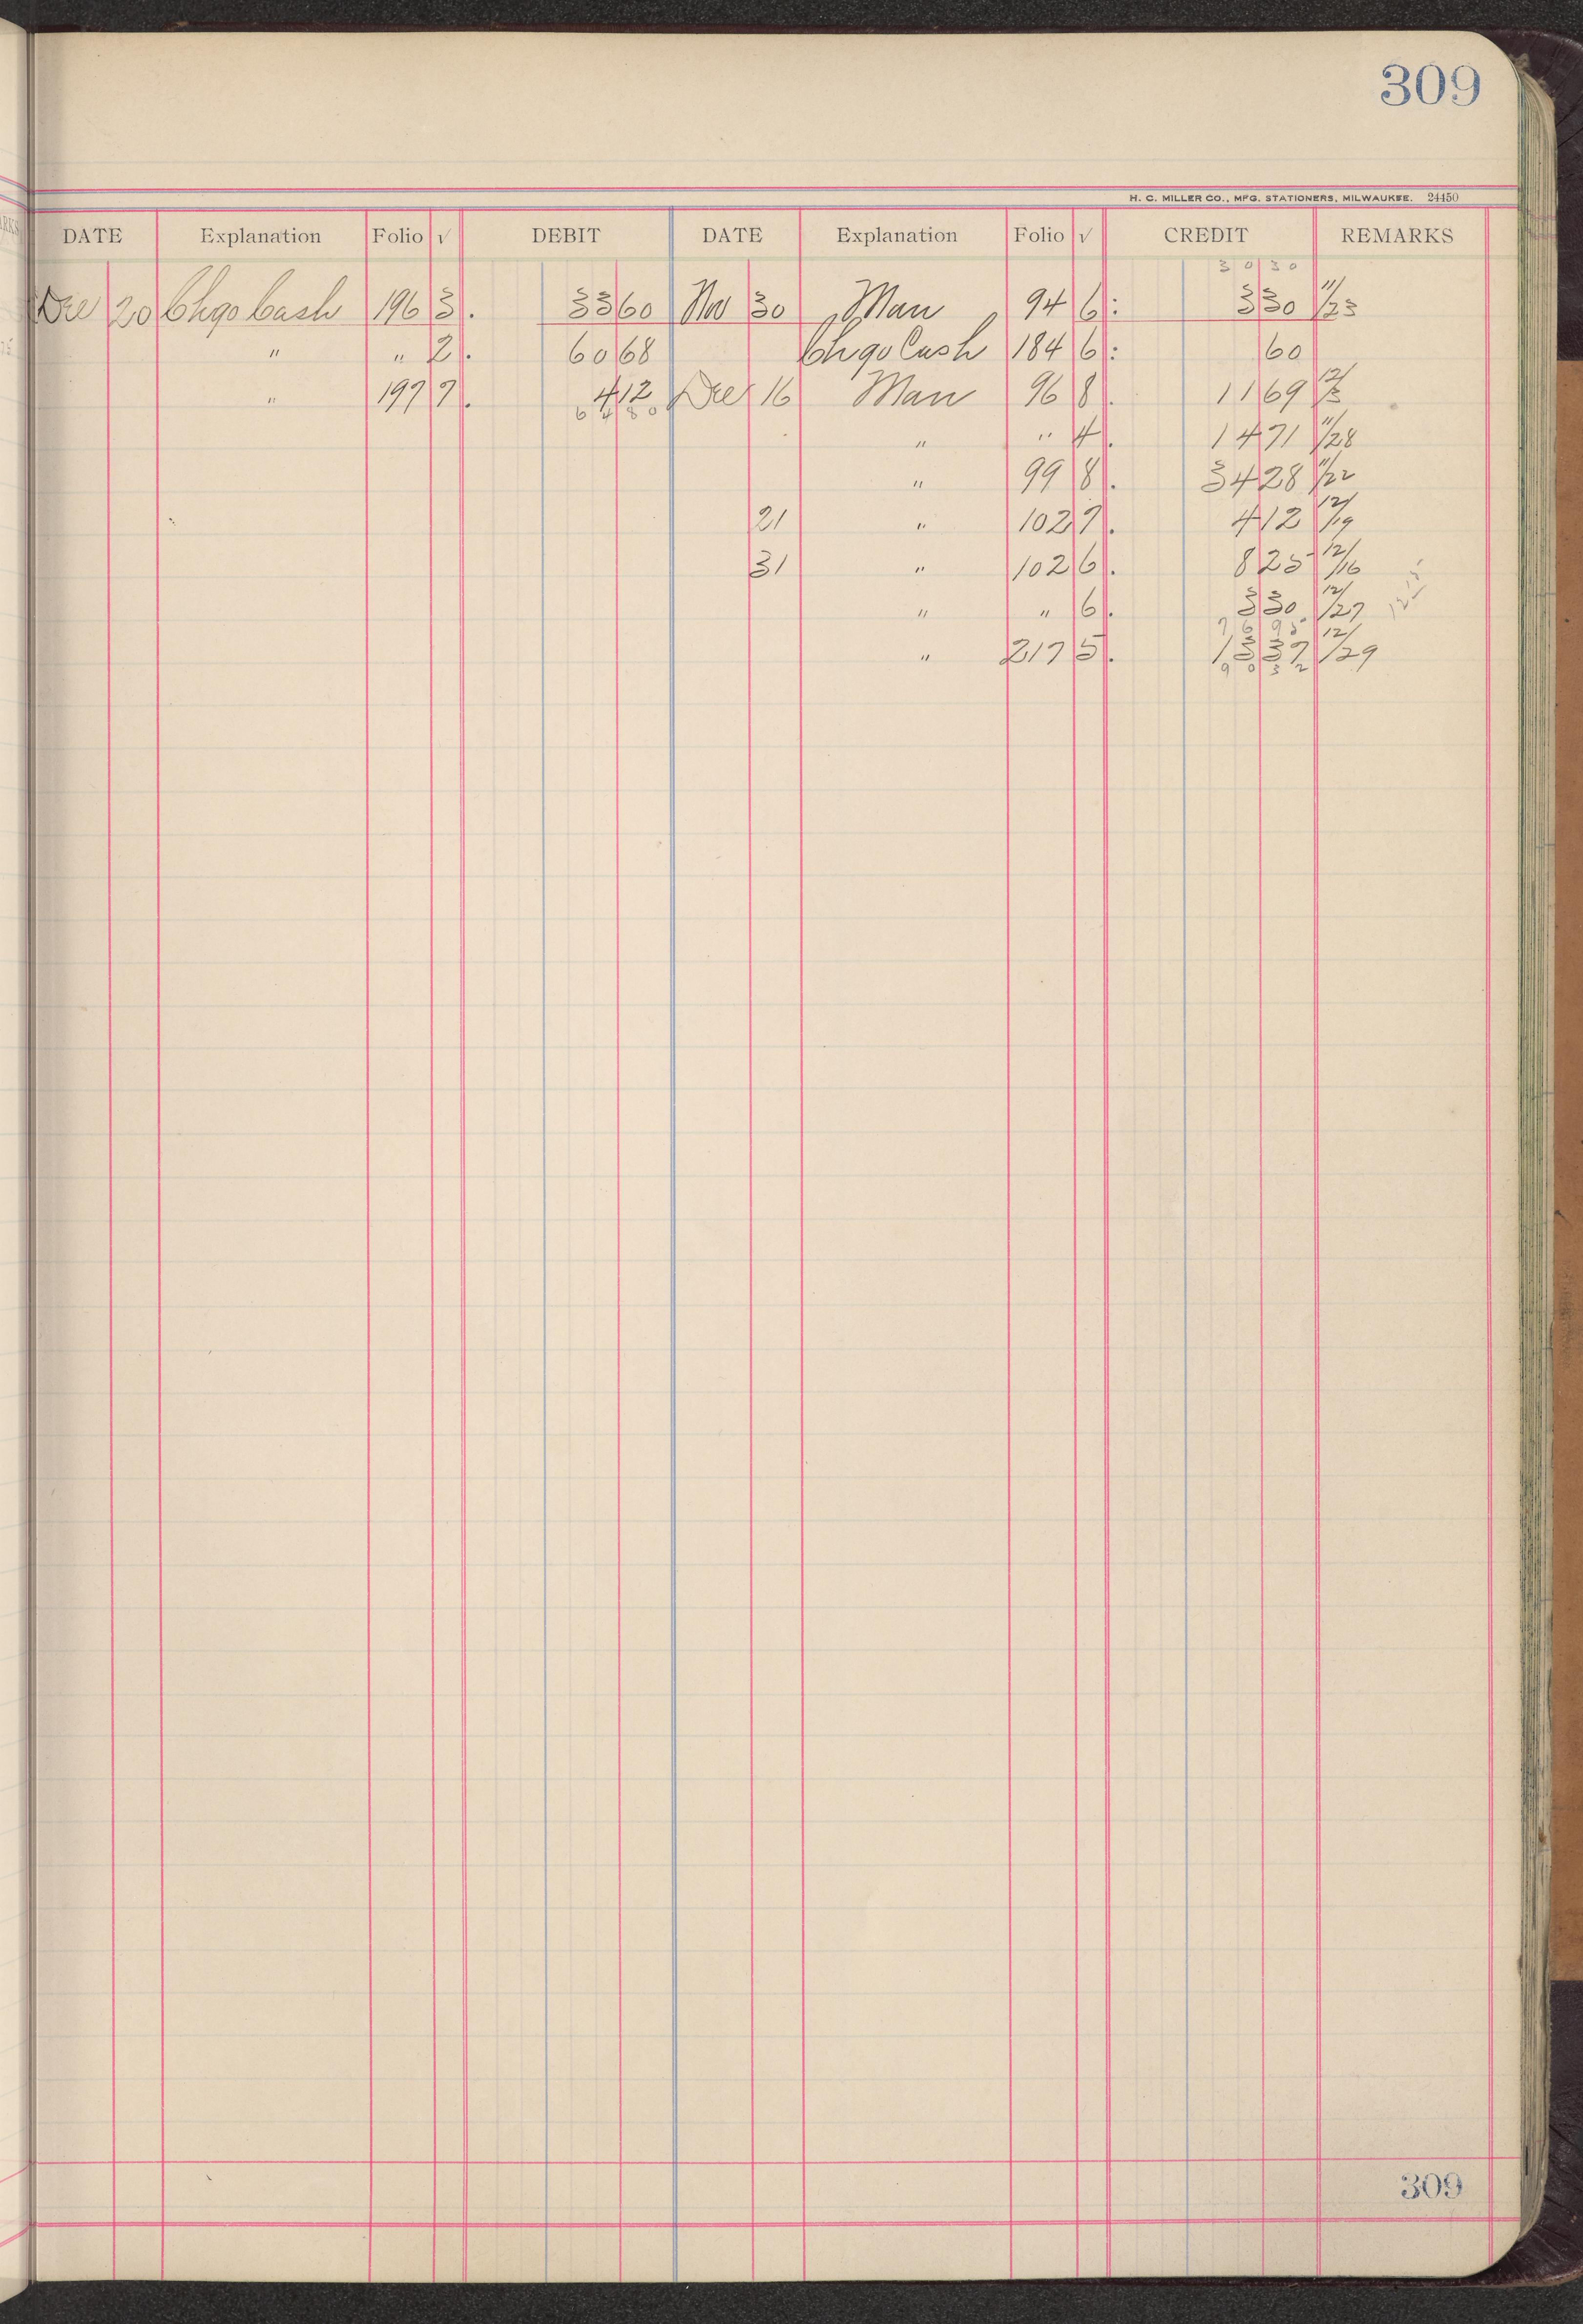 309
H. C. MILLER CO., MFG. STATIONERS, MILWAUKEE. 24450
DATE Explanation Folio √ DEBIT DATE Explanation Folio √ CREDIT REMARKS
30 30
Dec 20 Chgo Cash 196 3. 33 60 Nov 30 Man 94 6: 3 30 11/23
" " 2. 60 68 Chgo Cash 184 6: 60
" 197 7. 4 12 Dec 16 Man 96 8. 11 69 12/3
64 80 " " 4. 14 71 11/28
" 99 8. 34 28 11/22
21 " 102 7. 4 12 12/19
31 " 102 6. 8 25 12/16
" " 6. 3 30. 12/27
76 95
" 217 5. 13 37 12/29
90 32
309